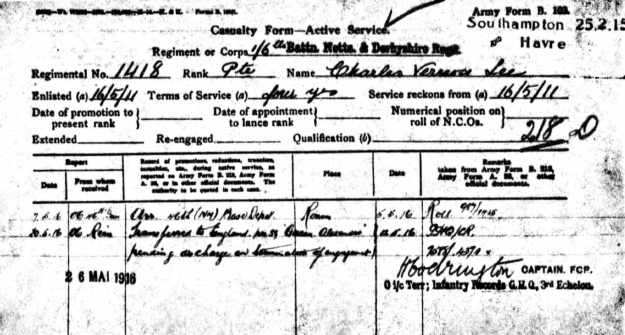 Army Form B. 103.
Casualty Form—Active Service.
Southampton 25.2.15
Havre
Regiment or Corps 1/6th Battn. Notts. & Derbyshire Regt.
Regimental No. 1418 Rank Pte Name Charles Vernon Lee
Enlisted (a) 16/5/11 Terms of Service (a) four yrs Service reckons from (a) 16/5/11
Date of promotion to present rank Date of appointment to lance rank Numerical position on roll of N.C.Os.
Extended Re-engaged Qualification (b)
218 D
Report
Date From whom received
Record of promotions, reductions, transfers, casualties, etc., during active service, as reported on Army Form B. 213, Army Form A. 36, or in other official documents. The authority to be quoted in each case.
Place
Date
Remarks taken from Army Form B. 213, Army Form A. 36, or other official documents.
7.5.16 Arr Base Depot Rouen 5.5.16 Roll
Transferred to England
pending discharge on termination of engagement
26 MAI 1916
CAPTAIN. FOR.
O i/c Terr; Infantry Records G.H.Q., 3rd Echelon.